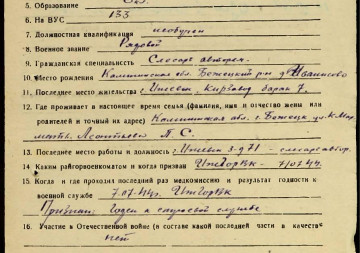 5. Образование
6. На ВУС 133
7. Должностная квалификация необучен
8. Военное звание Рядовой
9. Гражданская специальность Слесарь авторем.
10. Место рождения Калининская обл. Бежецкий р-н д. Иваньково
11. Последнее место жительства: г. Ижевск - Кирзавод барак 7.
12. Где проживает в настоящее время семья (фамилия, имя и отчество жены или
родителей и точный их адрес) Калининская обл. г. Бежецк ул. К. Мар.
П. С.
13. Последнее место работы и должность: г. Ижевск з-д 71 - слесарь
14 Каким райгорвоенкоматом и когда призван ИжГорВК - 7/07 44.
15. Когда и где проходил последний раз медкомиссию и результат годности к
военной службе 7.07.44г. ИжГорВК
Признан: Годен к строевой службе
16. Участие в Отечественной войне (в составе какой последней части в качестве
нет